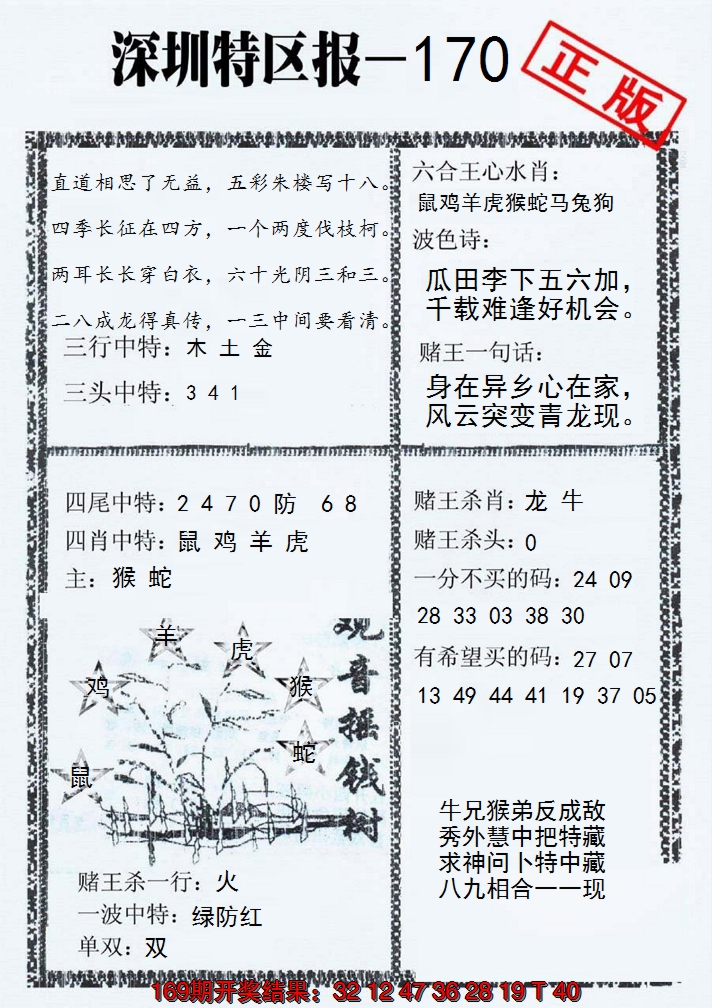 深圳特区报—170
正版
直道相思了无益，五彩朱楼写十八。
四季长征在四方，一个两度伐枝柯。
两耳长长穿白衣，六十光阴三和三。
二八成龙得真传，一三中间要看清。
三行中特：木 土 金
三头中特：3 4 1
六合王心水肖：
鼠鸡羊虎猴蛇马兔狗
波色诗：
瓜田李下五六加，
千载难逢好机会。
赌王一句话：
身在异乡心在家，
风云突变青龙现。
四尾中特：2 4 7 0 防 6 8
四肖中特：鼠 鸡 羊 虎
主：猴 蛇
羊
虎
鸡
猴
蛇
鼠
观音摇钱树
赌王杀一行：火
一波中特：绿防红
单双：双
赌王杀肖：龙 牛
赌王杀头：0
一分不买的码：24 09
28 33 03 38 30
有希望买的码：27 07
13 49 44 41 19 37 05
牛兄猴弟反成敌
秀外慧中把特藏
求神问卜特中藏
八九相合一一现
169期开奖结果：32 12 47 36 28 19 T 40